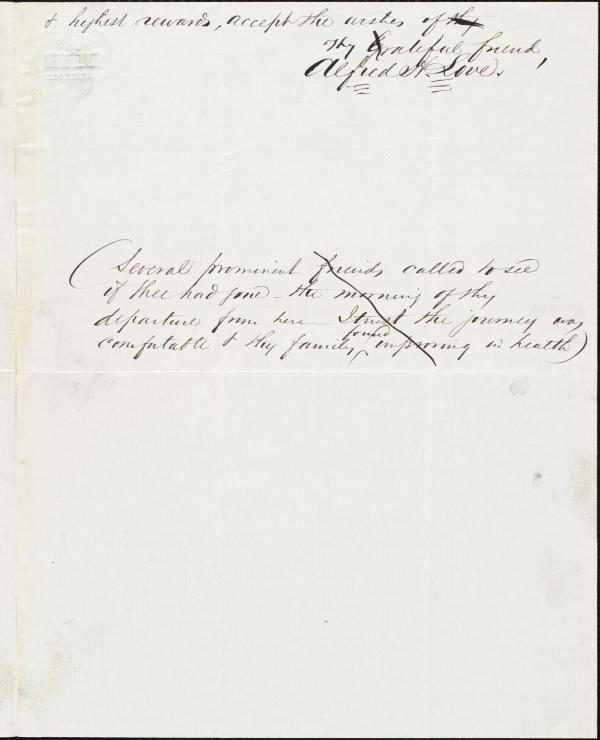 & highest rewards, accept the wishes of thy
Thy Grateful friend,
Alfred H. Love.
(Several prominent friends called to see
if thee had gone – the morning of thy
departure from here – I trust the journey was
comfortable & thy family found improving in health)